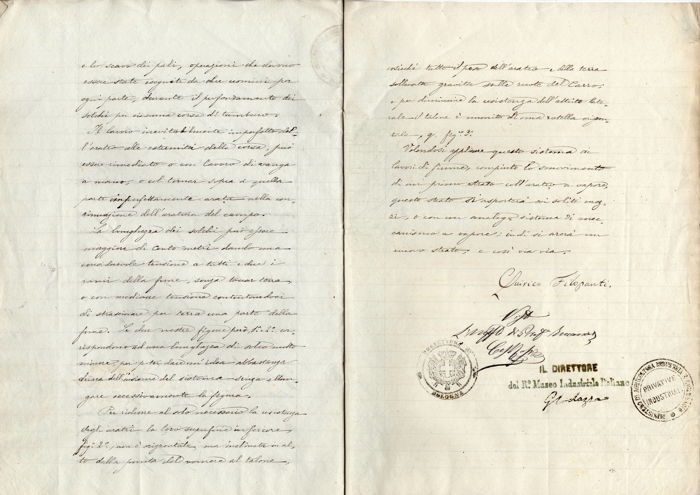 e lo scavo dei pali, operazioni che devono
essere state eseguite da due uomini per
ogni parte, durante il profondamento dei
solchi per ciascuna corsa di tamburo.
Il lavoro inevitabilmente imperfetto del
l'aratro alle estremità della corsa, può
essere rimediato o con lavoro di vanga
a mano, o col tornar sopra a quella
parte imperfettamente arata nella con
tinuazione dell'aratura del campo.
La lunghezza dei solchi può essere
maggiore di Cento metri dando una
considerevole tensione a tutti e due i
rami della fune, senza toccar terra
o con mediocre tensione contentandosi
di strascinar per terra una parte della
fune. Le due nostre figure
rispondono ad una lunghezza di molto
minore, per dare un'idea abbastanza
chiara dell'insieme del sistema senza allun
gare eccessivamente la figura.
Per ridurre al solo necessario la resistenza
degli aratri, la loro superficie inferiore
fig. 2.ª, non è orizzontale, ma inclinata in al
to dalla punta del vomere al talone,
sicchè tutto il peso dell'aratro e della terra
sollevata gravita sulle ruote del Carro;
e per diminuire la resistenza dell'attrito late
rale il talone è munito di una rotella orizon
tale, q, fig.ª 3.ª
Volendosi applicare questo sistema ai
lavori di fiume, compiuto lo smovimento
di un primo strato coll'aratro a vapore,
questo strato si asporterà coi soliti mez
zi, o con un analogo sistema di mec
canismo a vapore; indi si arerà un
nuovo strato, e così via via.
Quirico Filopanti.
Visto
BOLOGNA
IL DIRETTORE
del R.º Museo Industriale Italiano
PRIVATIVE
INDUSTRIALI